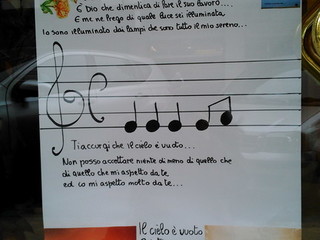 E' Dio che dimentica di fare il suo lavoro...
E me ne frego di quale luce sei illuminata
Io sono illuminato dai lampi che sono tutto il mio sereno...
Ti accorgi che il cielo è vuoto...
Non posso accettare niente di meno di quello che
di quello che mi aspetto da te
ed io mi aspetto molto da te...
Il cielo è vuoto